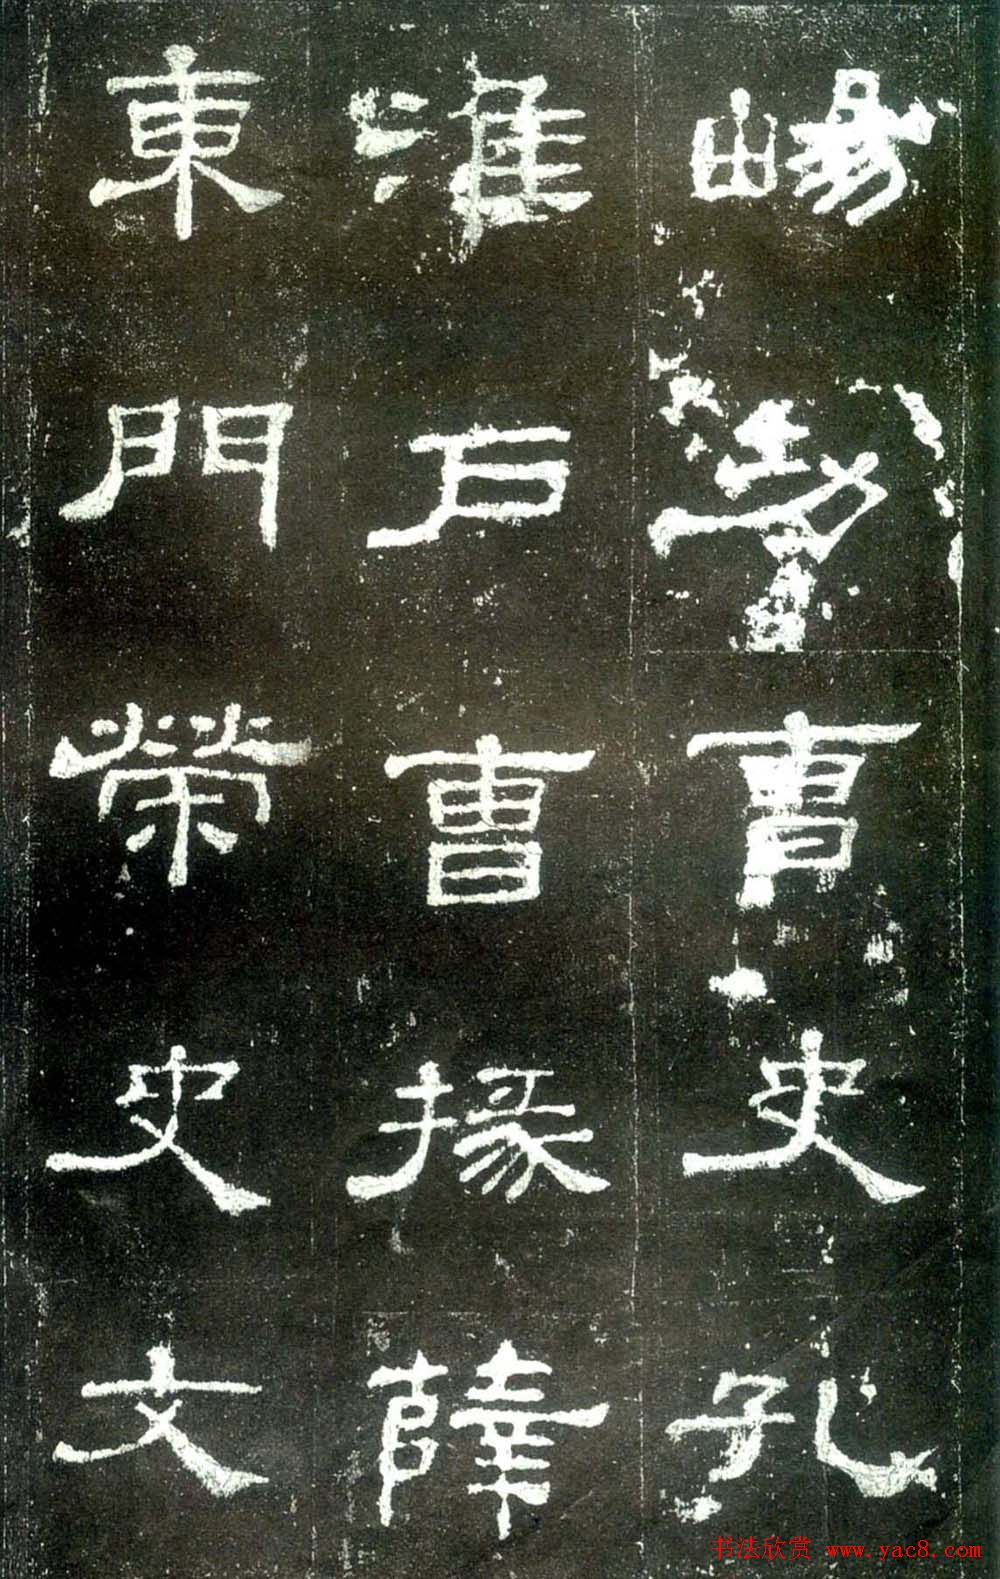 暢功曹史孔
淮戶曹掾薛
東門榮史文
书法欣赏 www.yac8.com